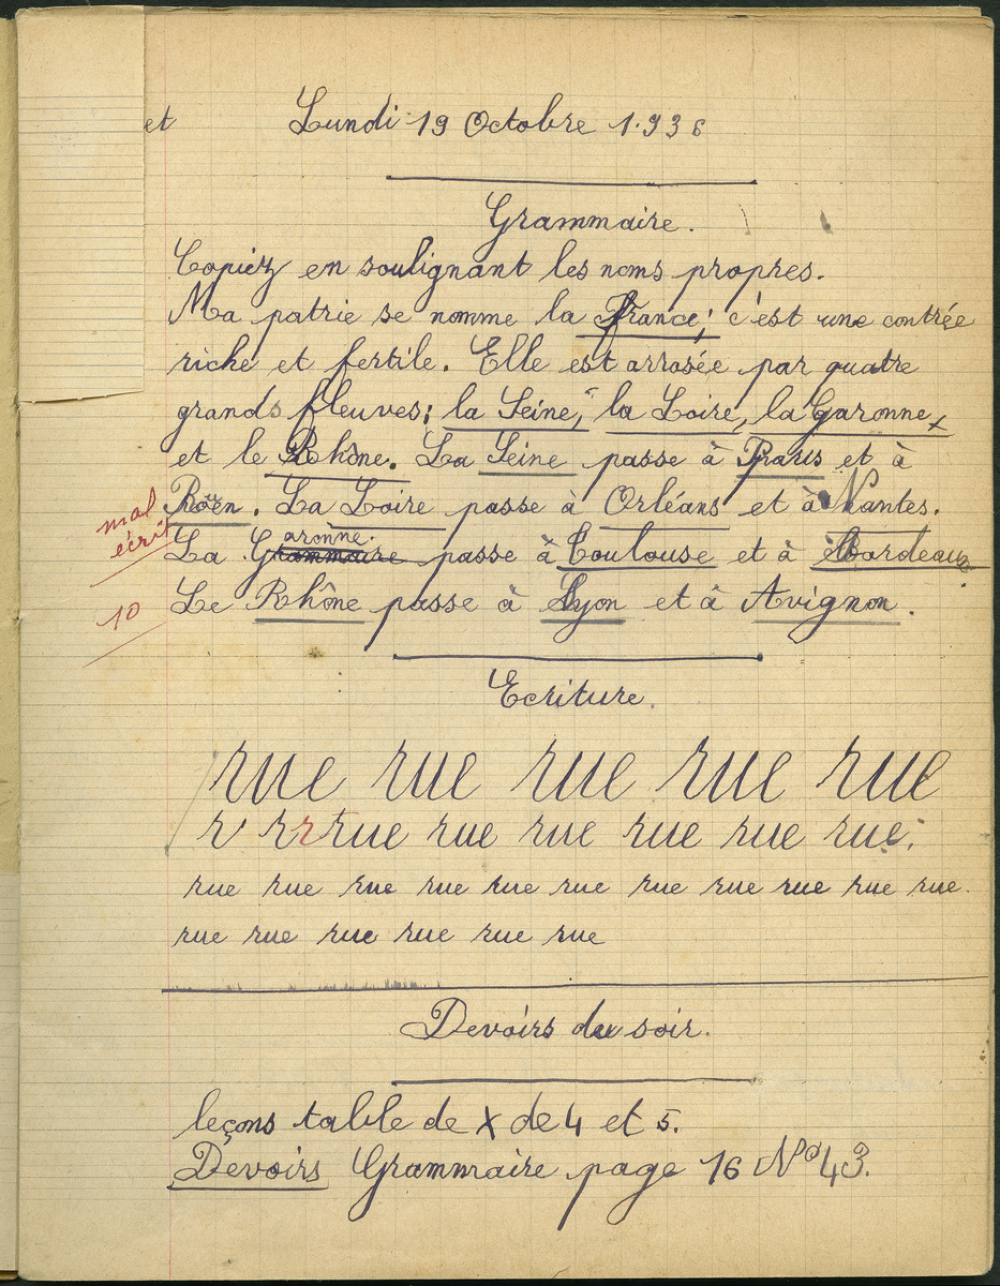 et
Lundi 19 Octobre 1.936
Grammaire.
Copiez en soulignant les noms propres.
Ma patrie se nomme la France; c'est une contrée
riche et fertile. Elle est arrosée par quatre
grands fleuves: la Seine, la Loire, la Garonne,
et le Rhône. La Seine passe à Paris et à
Roen. La Loire passe à Orléans et à Nantes.
mal
écrit
aronne.
La Grammaire passe à Toulouse et à Bordeaux
10
Le Rhône passe à Lyon et à Avignon.
Ecriture.
rue rue rue rue rue
r rrrue rue rue rue rue rue.
rue rue rue rue rue rue rue rue rue rue rue.
rue rue rue rue rue rue
Devoirs du soir.
leçons table de X de 4 et 5.
Devoirs Grammaire page 16 N° 43.